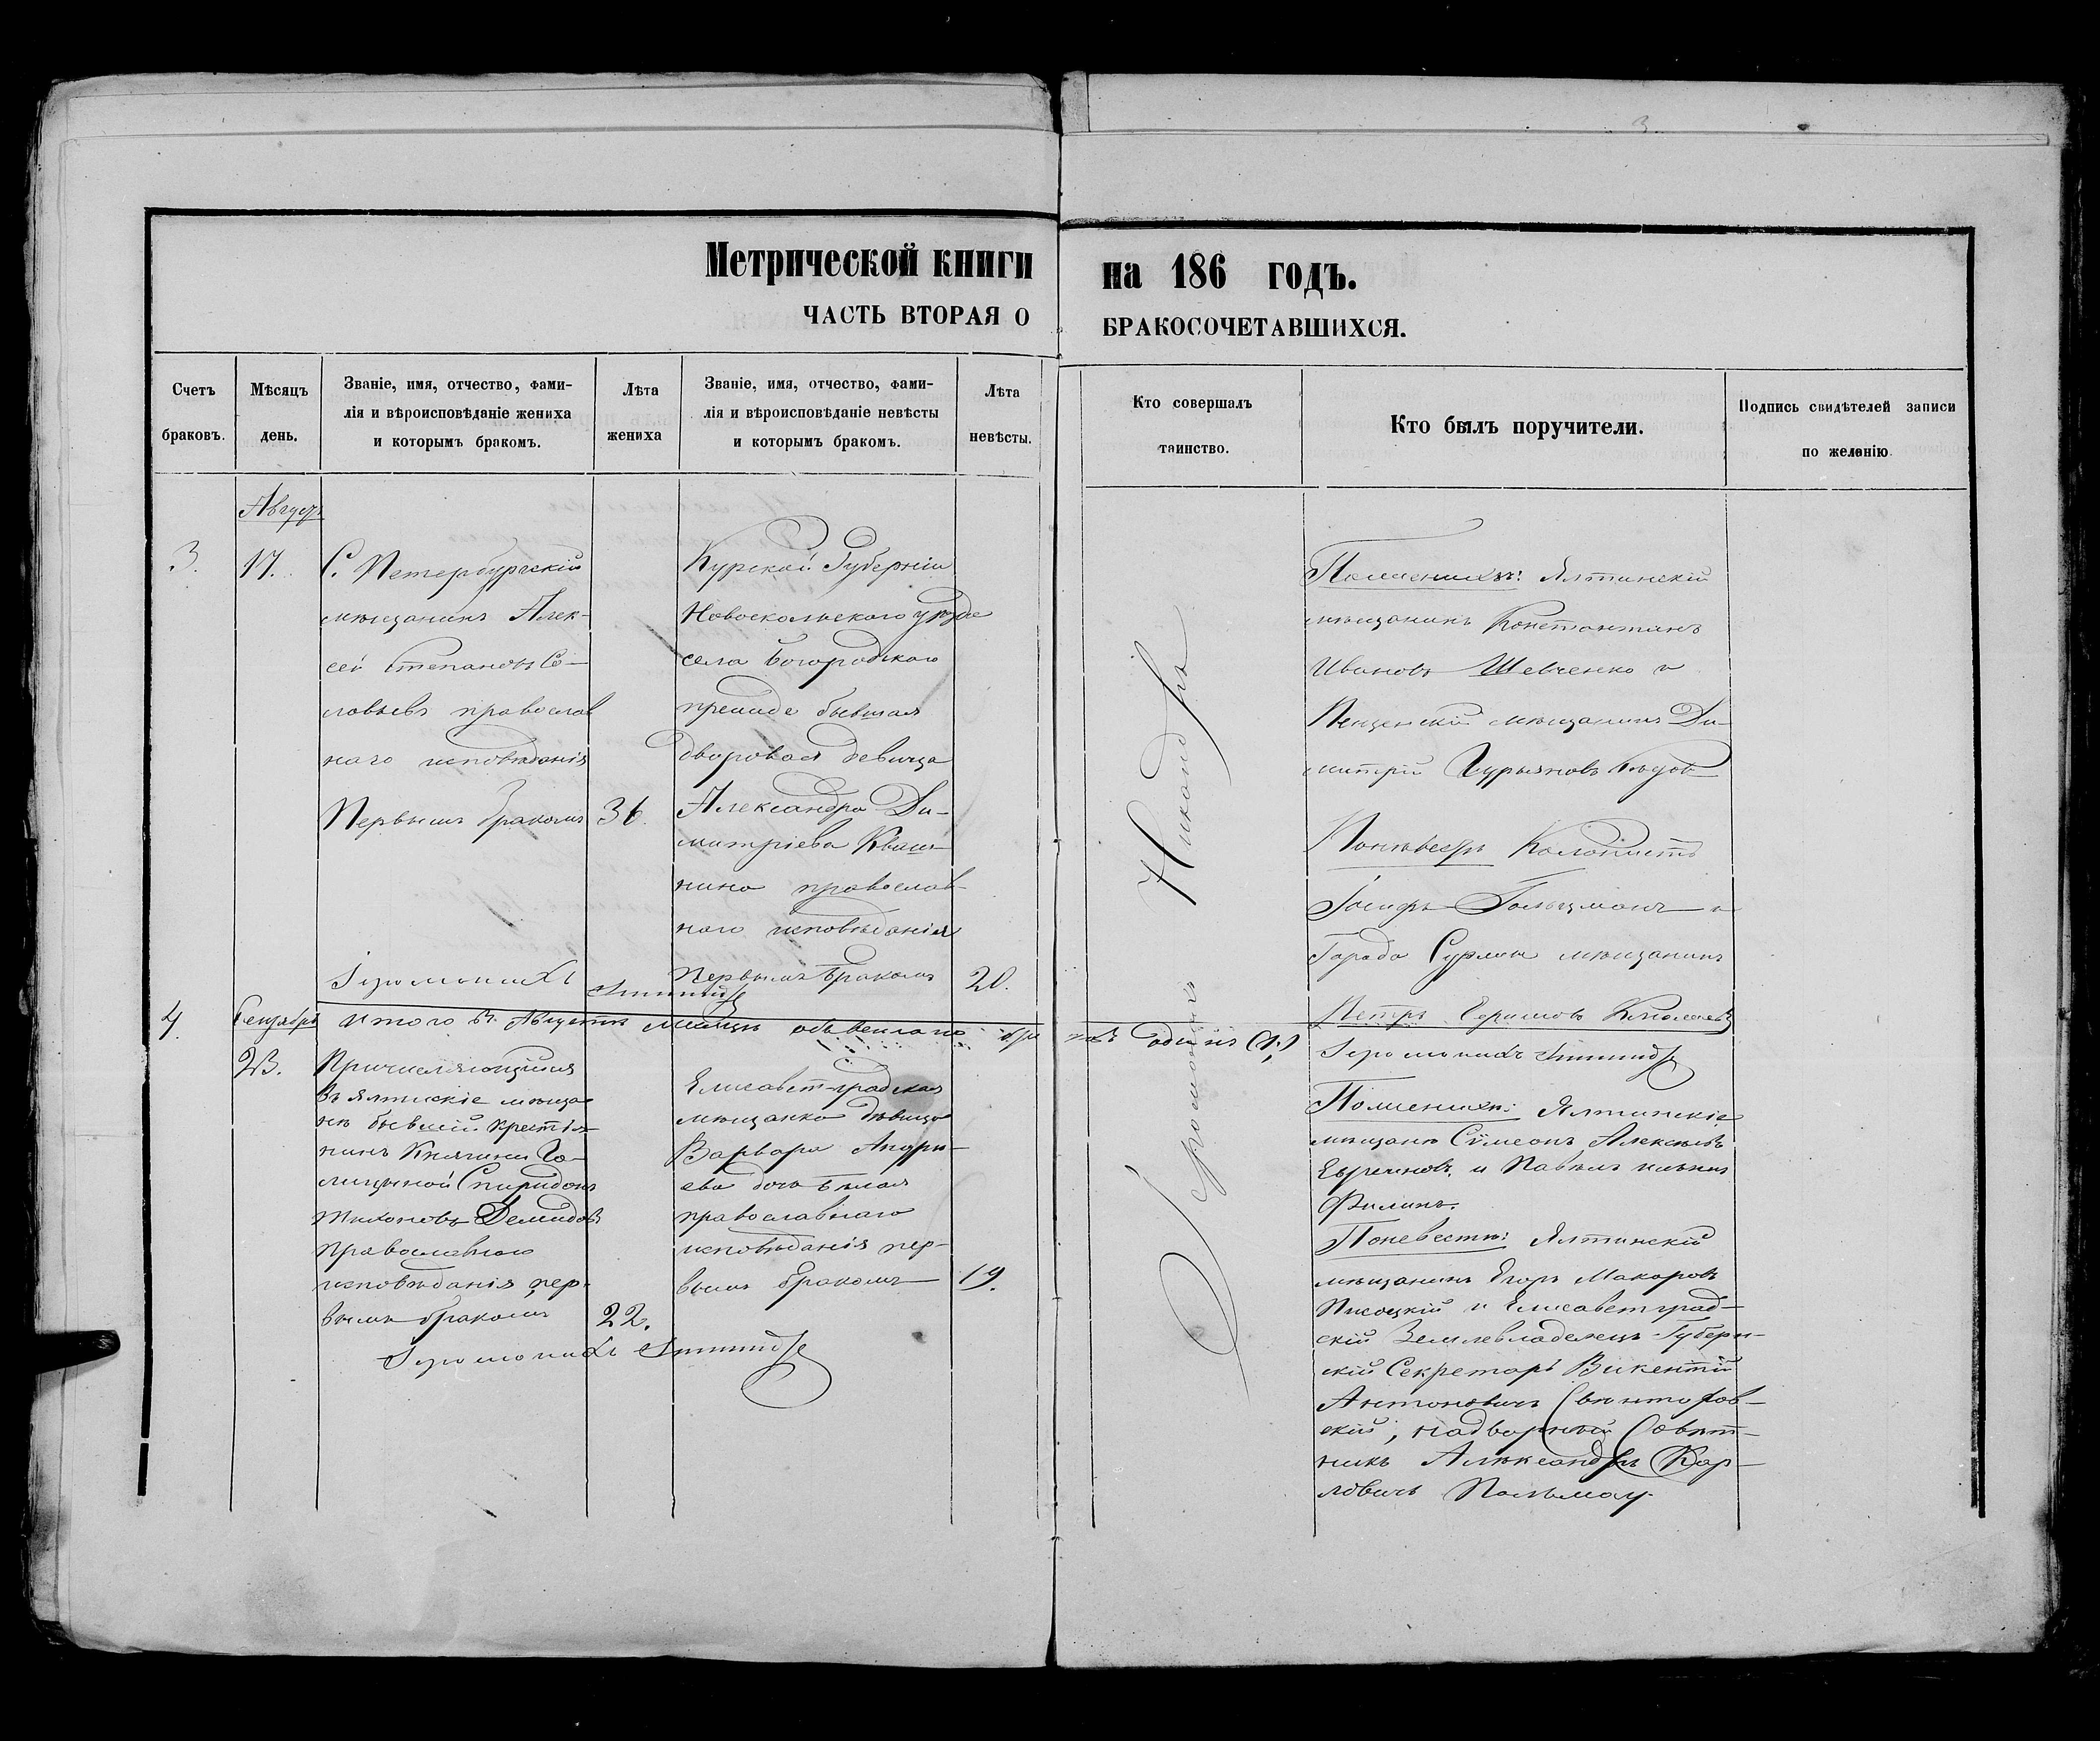 Метрической книги на 186 годъ.
ЧАСТЬ ВТОРАЯ О БРАКОСОЧЕТАВШИХСЯ.
Счетъ
браковъ.
Мѣсяцъ
день.
Званіе, имя, отчество, фами-
лія и вѣроисповѣданіе жениха
и которымъ бракомъ.
Лѣта
жениха
Званіе, имя, отчество, фами-
лія и вѣроисповѣданіе невѣсты
и которымъ бракомъ.
Лѣта
невѣсты.
Кто совершалъ
таинство.
Кто былъ поручители.
Подпись свидѣтелей записи
по желанію.
3.
Августъ
17.
С. Петербургскій
мѣщанинъ Алек-
сѣй Степановъ Со-
ловьевъ православ
наго исповѣданія
Первымъ бракомъ
36.
Курской Губерніи
Новоскольскаго уѣзда
села Богородскаго
прежде бывшая
дворовая девица
Александра Ди-
митріева Кваш-
нина православ-
наго исповѣданія
Первымъ бракомъ
20.
Іеромонахъ
Іеромонахъ Никандръ
Поженихѣ: Ялтинскій
мѣщанинъ Константинъ
Ивановъ Шевченко и
Пензенскій мѣщанинъ Ди-
митрій Гурьяновъ
Колонистъ
Іосифъ Гольцманъ и
Города мѣщанинъ
Петръ
Іеромонахъ
Итого въ Августѣ Месяцѣ обвенчано бра ковъ одинъ (1)
4.
Сентябрь
23.
Причисляющійся
въ Ялтискіе мѣща
не бывшій крестья
нинъ Княгини Го-
лицыной Спиридонъ
Тихоновъ Демидовъ
Православнаго
исповѣданія пер-
вымъ бракомъ
22.
Елисавет-градская
мѣщанка дѣвица
Варвара Андре-
ева дочь Бѣлая
православнаго
исповѣданія пер-
вымъ бракомъ
19.
Іеромонахъ
Поженихѣ: Ялтинскіе
мѣщане Сѵмеонъ Алексѣевъ
Евреиновъ, и Павелъ
Филинъ.
Поневестѣ: Ялтинскій
мѣщанинъ Егоръ Макаровъ
Писоцкій и Елисаветград-
скій Землевладелецъ Губерн-
скій Секретарь Викентій
Антоновичъ
скій, надворный Совѣт-
никъ Александръ Кар-
ловичъ